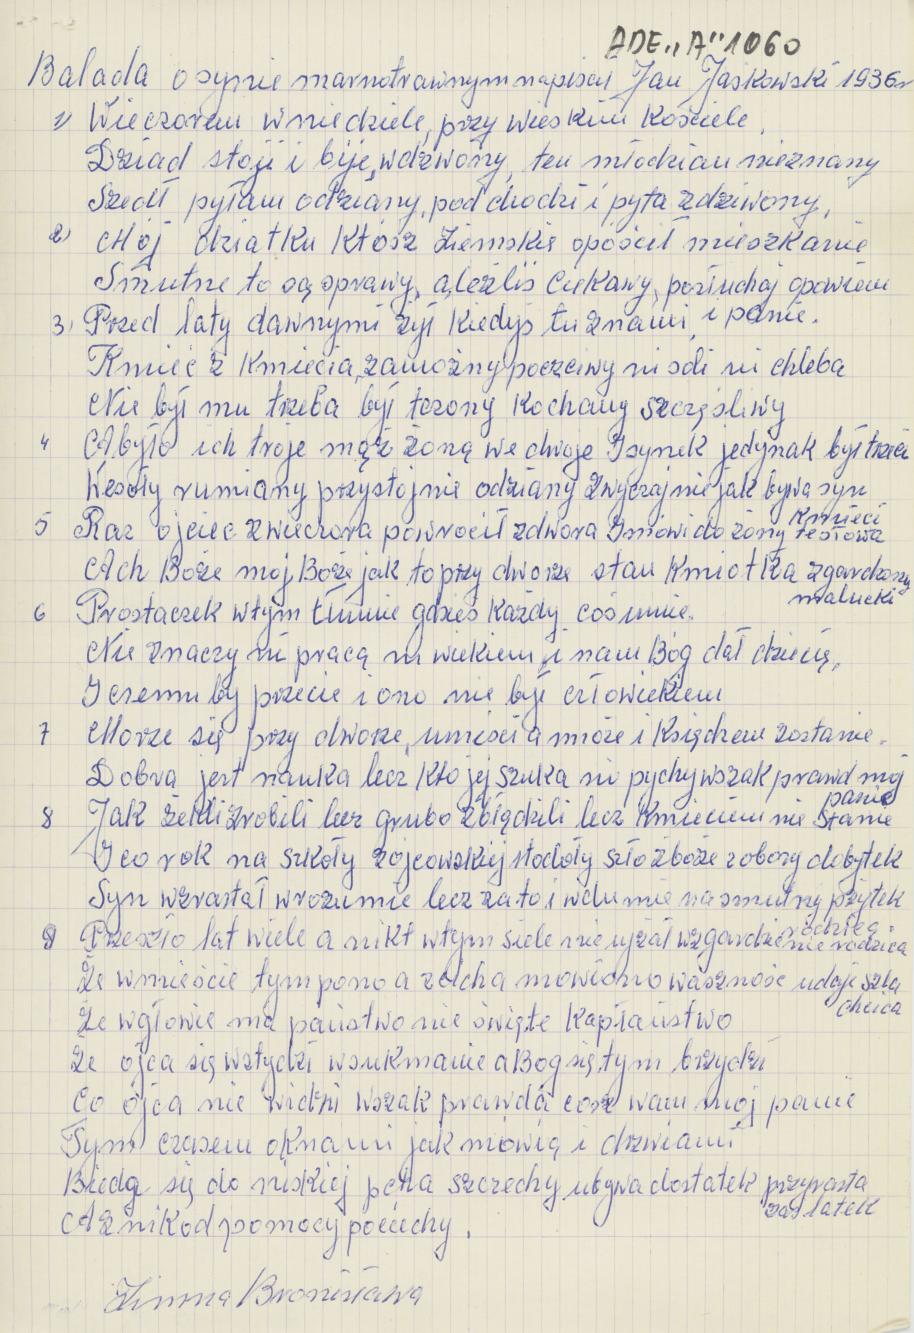 ADE „A" 1060
Balada o synie marnotrawnym napisał Jan Jaskowski 1936r
1) Wieczorem w niedziele, przy wieskim Kościele,
Dziad stoji i bije, w dzwony, ten młodzian nieznany
Szedł pyłam odziany, pod chodzi i pyta zdziwony,
2) Mój dziatku Ktosz ziemskię opóścił mieszkanie
Smutne to są sprawy, a leżliś Ciekawy, posłuchaj opowiem
i panie.
3) Przed laty dawnymi żył Kiedyś tu znami,
Kmieć z Kmiecia, zamożny poczciwy ni soli ni chleba
Nie był mu trzeba był tczony Kochany szczęśliwy
4 A było ich troje mąż żoną we dwoje I synek jedynak był trzeci
Wesoły rumiany przystojnie odziany zwyczajnie jak bywa syn
Kmieci
5 Raz ojciec zwieczora powrócił zdwora I mówi do żony
Ach Boże moj Boże jak to przy dworze stan Kmiotka zgardzony
malucki
6 Prostaczek wtym tłumie gdzies Każdy coś umie.
Nie znaczy ni pracą ni wiekiem, i nam Bóg dał dziecię,
I czemu by przecie i ono nie był człowiekiem
7 Morze się przy dworze, umieści a może i Księdzem zostanie.
Dobra jest nauka lecz Kto jej szuka ni pychy wszak prawd mój
panie
8 Jak żekli zrobili lecz grubo zbłądzili lecz Kmieciem nie stanie
I co rok na szkoły zojcowskiej stodoły szło zboże z obory dobytek
Syn wzrastał wrozumie lecz za to i wdumie na smutny pożytek
rodzica
9 Przeszło lat wiele a nikt wtym siele nie ujżał wzgardzie nie rodzica
Że wmieście tym pono a zcicha mowiono waszność udaje szla
chcica
Że wgłowie ma państwo nie święte Kapłaństwo
Że ojca się wstydzi wsukmanie a Bog się tym brzydzi
Co ojca nie widzi wszak prawda cosz wam mój panie
Tym czasem oknami jak mówią i drzwiami
Biedą się do niskiej pcha szczechy ubywa dostatek przyrasta
zas łatek
A z nikod pomocy pociechy.
Zimna Bronisława